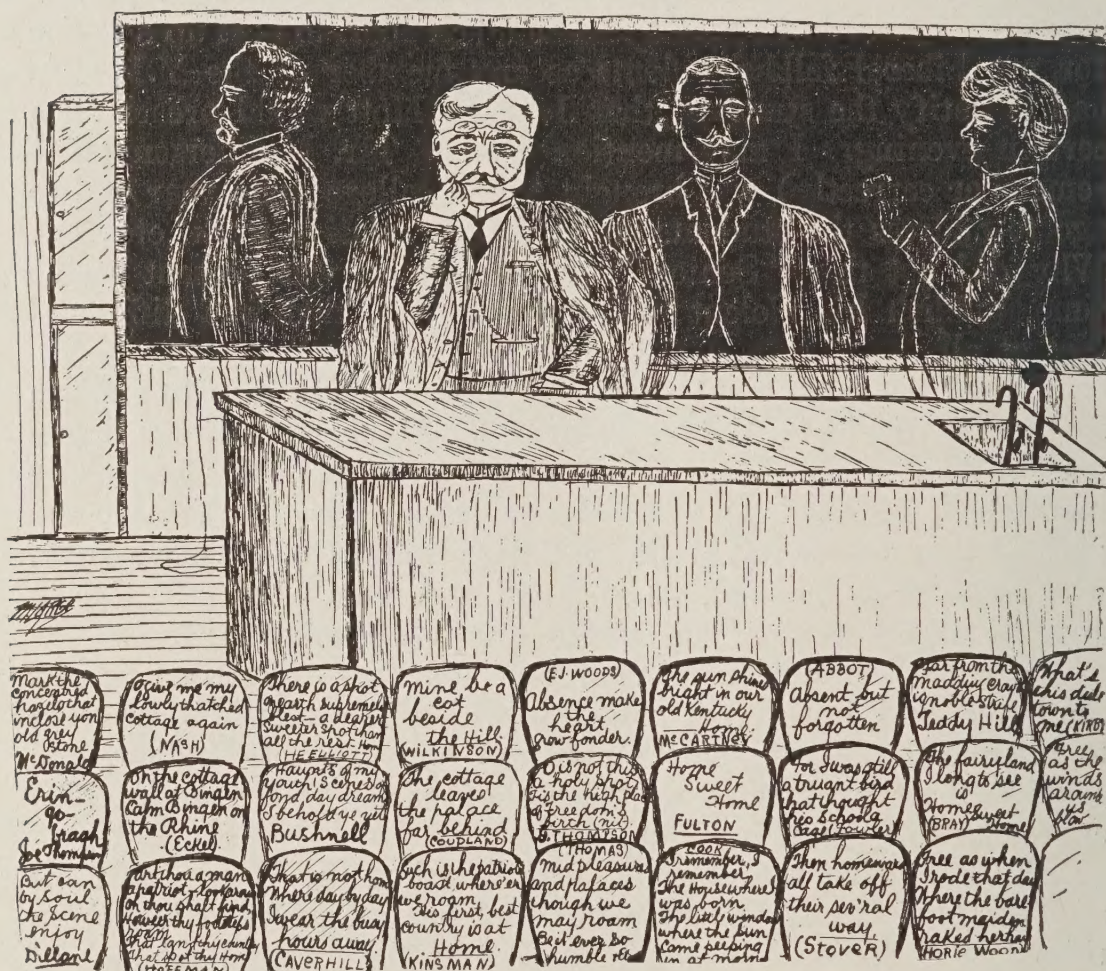 Mark the
concentred
hazels that
inclose yon
old grey
stone
McDonald
O give me my
lowly thatched
cottage again
(NASH)
There is a spot
of earth supremely
blest – a dearer
sweeter spot than
all the rest. Home
Mine be a
cot
beside
the Hill
(WILKINSON)
(E.J. WOODS)
Absence makes
the
heart
grow fonder.
The sun shines
bright in our
old Kentucky
Home
McCARTNEY
(ABBOT)
Absent but
not
forgotten
Far from the
madding crowd's
ignoble strife
Teddy Hill
What's
this dull
town to
me (KIRBY)
Erin-
go-
braagh
Joe Thompson
On the cottage
wall at Bingen
Calm Bingen on
the Rhine
(Eckel)
Haunts of my
youth! Scenes of
fond day dreams
I behold ye yet
Bushnell
The cottage
leaves
the palace
far behind
(COUPLAND)
O is not this
a holy spot
'Tis the high place
of Freedom's
birth (nit)
THOMPSON
Home
Sweet
Home
FULTON
For I was still
a truant bird
that thought
his School a
Cage (Fowler)
The fairyland
I long to see
is
Home Sweet
(BRAY) Home
Free
as the
winds
around
us
blow
But can
my soul
the scene
enjoy
Dillane
Art thou a man
a patriot – look around
oh thou shalt find,
Howe'er thy footsteps
roam
That land thy country
That spot thy Home
(HOFFMAN)
That is not home
Where day by day
I wear the busy
hours away
(CAVERHILL)
Such is the patriot's
boast where'er
we roam
His first, best
country is at
Home.
(KINSMAN)
(THOMAS)
Mid pleasures
and palaces
though we
may roam
Be it ever so
humble etc.
COOK
I remember, I
remember,
The House where I
was born
The little window
where the sun
came peeping
in at morn
Then homeward
all take off
their sev'ral
way.
(STOVER)
Free as when
I rode that day
Where the bare
foot maiden
raked her hay
HORIE WOODS